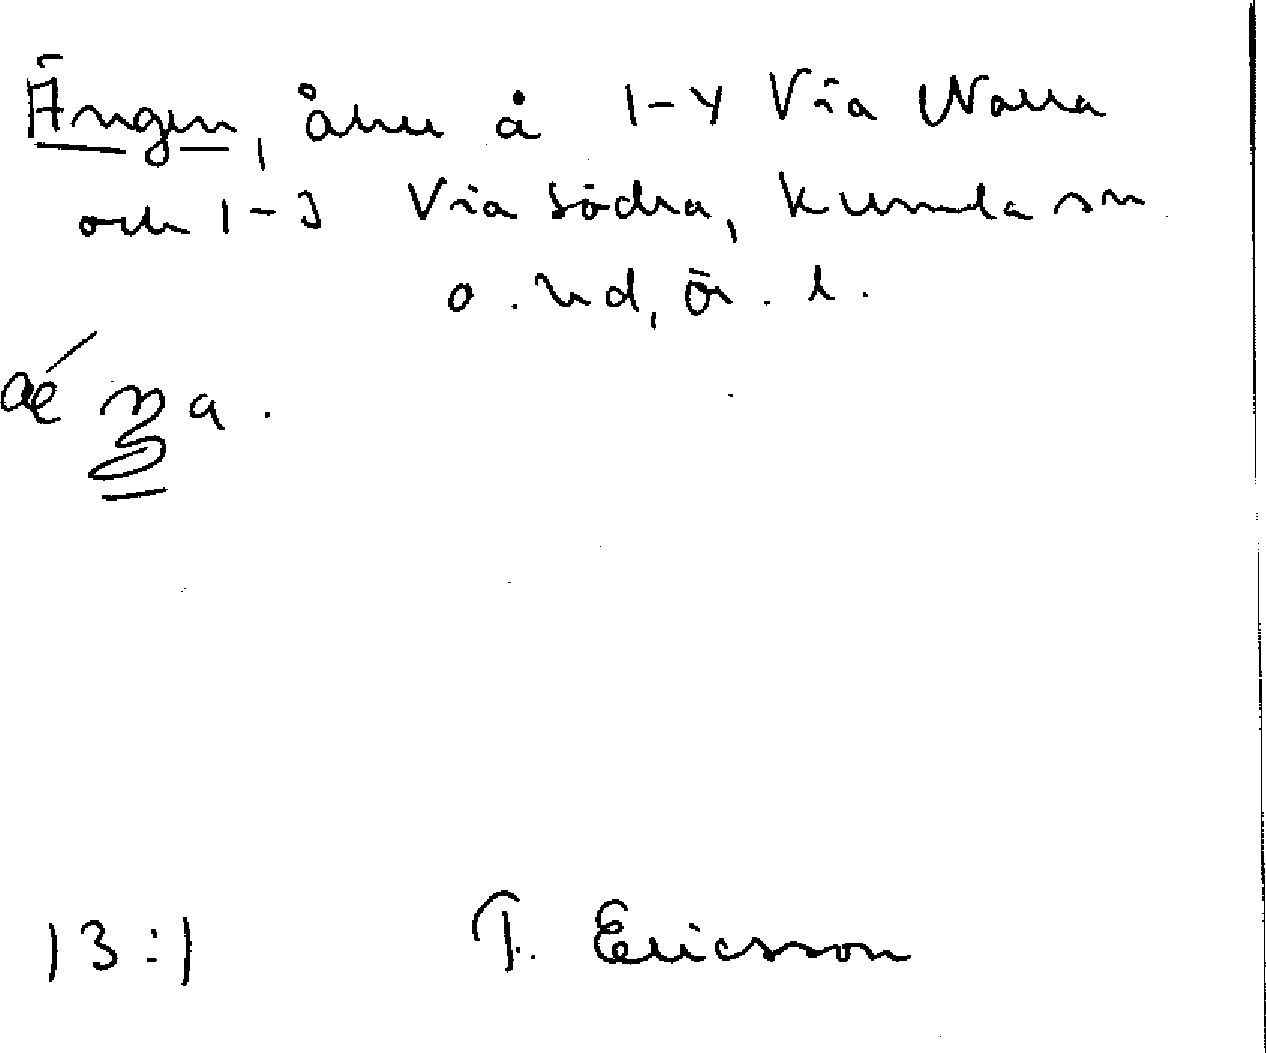 Ängen, åker å 1-4 Via Norra
och 1-3 Via Södra, Kumla sn
o. hd, Ör. l.
13:1 T. Ericsson